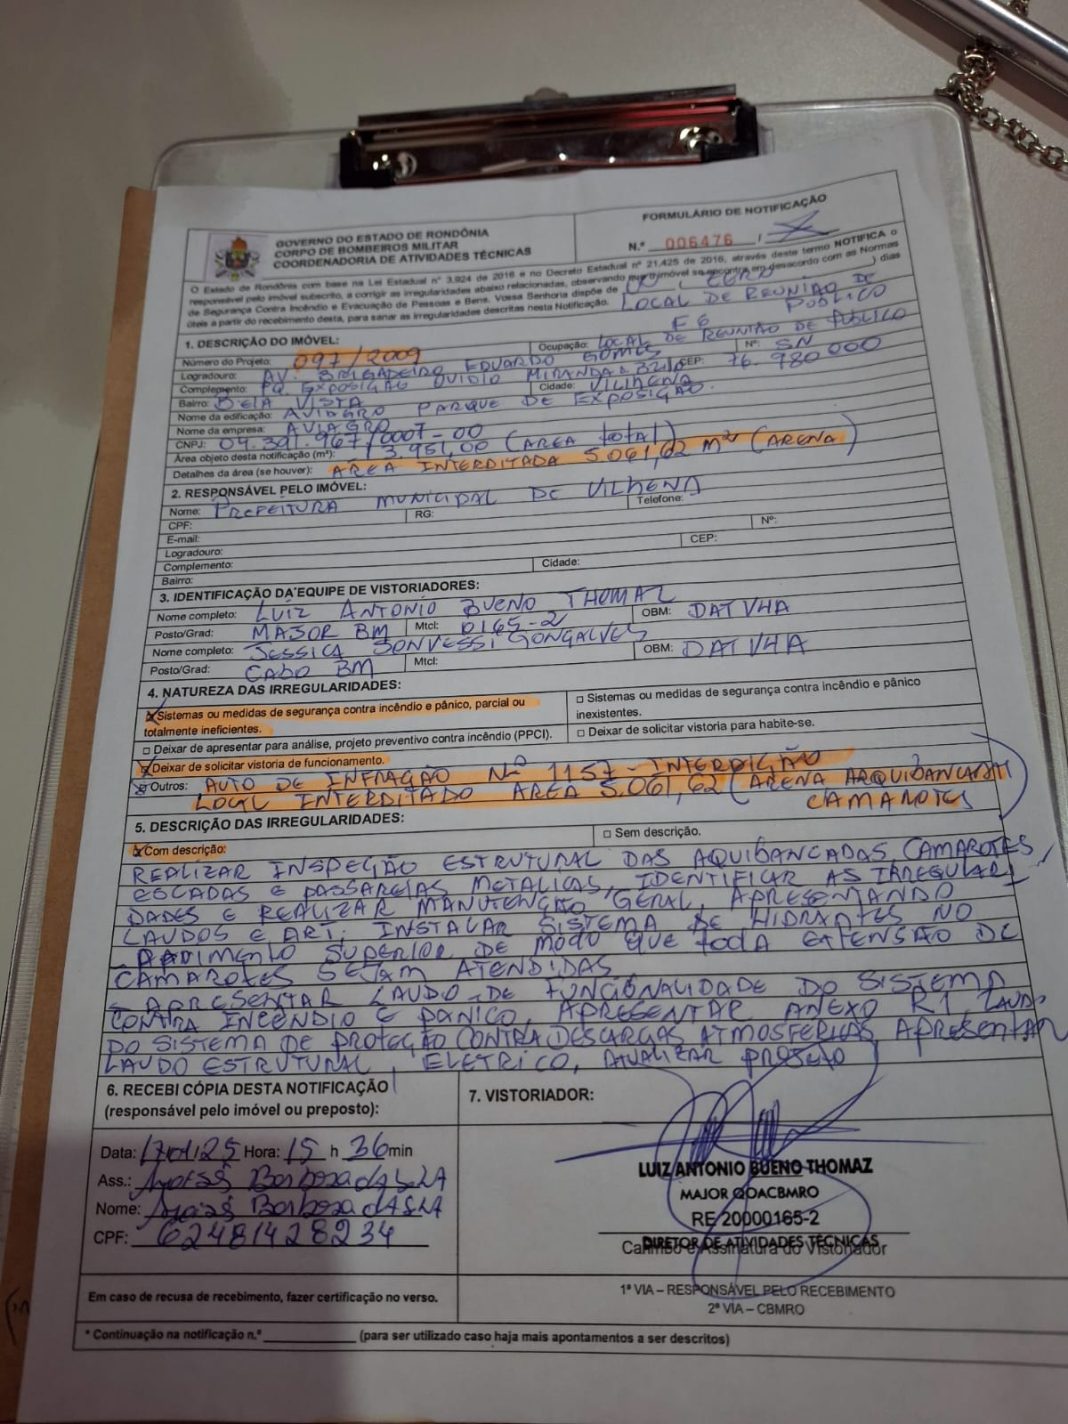 GOVERNO DO ESTADO DE RONDÔNIA
CORPO DE BOMBEIROS MILITAR
COORDENADORIA DE ATIVIDADES TÉCNICAS
FORMULÁRIO DE NOTIFICAÇÃO
N.º 006476 /
O Estado de Rondônia com base na Lei Estadual nº 3.924 de 2016 e no Decreto Estadual nº 21.425 de 2016, através deste termo NOTIFICA o
responsável pelo imóvel subscrito, a corrigir as irregularidades abaixo relacionadas, observando que o imóvel se encontra em desacordo com as Normas
de Segurança Contra Incêndio e Evacuação de Pessoas e Bens. Vossa Senhoria dispõe de 00 (ZERO) dias
úteis a partir do recebimento desta, para sanar as irregularidades descritas nesta Notificação.
LOCAL DE REUNIÃO DE
PÚBLICO
1. DESCRIÇÃO DO IMÓVEL:
F6
Número do Projeto: 097/2009 Ocupação: LOCAL DE REUNIÃO DE PÚBLICO
Logradouro: AV. BRIGADEIRO EDUARDO GOMES Nº: SN
Complemento: PQ EXPOSIÇÃO OVIDIO MIRANDA BRITO CEP: 76.980000
Bairro: BELA VISTA Cidade: VILHENA
Nome da edificação: AVIAGRO PARQUE DE EXPOSIÇÃO.
Nome da empresa: AVIAGRO
CNPJ: 04.391.967/0007-00
Área objeto desta notificação (m²): 13.951,00 (AREA total)
Detalhes da área (se houver): AREA INTERDITADA 5.061,62 m² (ARENA)
2. RESPONSÁVEL PELO IMÓVEL:
Nome: PREFEITURA MUNICIPAL DE VILHENA
CPF: RG: Telefone:
E-mail:
Logradouro: Nº:
Complemento: CEP:
Bairro: Cidade:
3. IDENTIFICAÇÃO DA EQUIPE DE VISTORIADORES:
Nome completo: LUIZ ANTONIO BUENO THOMAZ
Posto/Grad: MAJOR BM Mtcl: 0165-2 OBM: DATVHA
Nome completo: JESSICA SONVESSI GONÇALVES
Posto/Grad: CABO BM Mtcl: OBM: DATVHA
4. NATUREZA DAS IRREGULARIDADES:
Sistemas ou medidas de segurança contra incêndio e pânico, parcial ou
totalmente ineficientes.
□ Sistemas ou medidas de segurança contra incêndio e pânico
inexistentes.
□ Deixar de apresentar para análise, projeto preventivo contra incêndio (PPCI).
□ Deixar de solicitar vistoria para habite-se.
Deixar de solicitar vistoria de funcionamento.
Outros: AUTO DE INFRAÇÃO Nº 1157 - INTERDIÇÃO
LOCAL INTERDITADO AREA 5.061,62 (ARENA ARQUIBANCADAS
CAMAROTES)
5. DESCRIÇÃO DAS IRREGULARIDADES:
Com descrição: □ Sem descrição.
REALIZAR INSPEÇÃO ESTRUTURAL DAS AQUIBANCADAS, CAMAROTES,
ESCADAS E PASSARELAS METALICAS, IDENTIFICAR AS IRREGULARI
DADES E REALIZAR MANUTENÇÃO GERAL, APRESENTANDO
LAUDOS E ART; INSTALAR SISTEMA DE HIDRANTES NO
PAVIMENTO SUPERIOR DE MODO QUE TODA EXTENSÃO DE
CAMAROTES SEJAM ATENDIDAS
- APRESENTAR LAUDO DE FUNCIONALIDADE DO SISTEMA
CONTRA INCÊNDIO E PANICO, APRESENTAR ANEXO R1, LAUDO
DO SISTEMA DE PROTEÇÃO CONTRA DESCARGAS ATMOSFERICAS, APRESENTAR
LAUDO ESTRUTURAL, ELETRICO, ATUALIZAR PROJETO
6. RECEBI CÓPIA DESTA NOTIFICAÇÃO
(responsável pelo imóvel ou preposto):
7. VISTORIADOR:
Data: Hora: 15 h 36 min
Ass.: Barbosa da Silva
Nome: Barbosa da Silva
CPF: 62481428234
LUIZ ANTONIO BUENO THOMAZ
MAJOR QOACBMRO
RE 20000165-2
DIRETOR DE ATIVIDADES TÉCNICAS
Carimbo e Assinatura do Vistoriador
Em caso de recusa de recebimento, fazer certificação no verso.
1ª VIA – RESPONSÁVEL PELO RECEBIMENTO
2ª VIA – CBMRO
* Continuação na notificação n.º ____________ (para ser utilizado caso haja mais apontamentos a ser descritos)